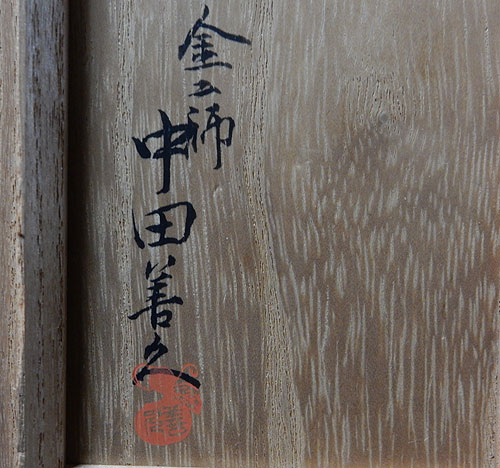 金工師
中田善久